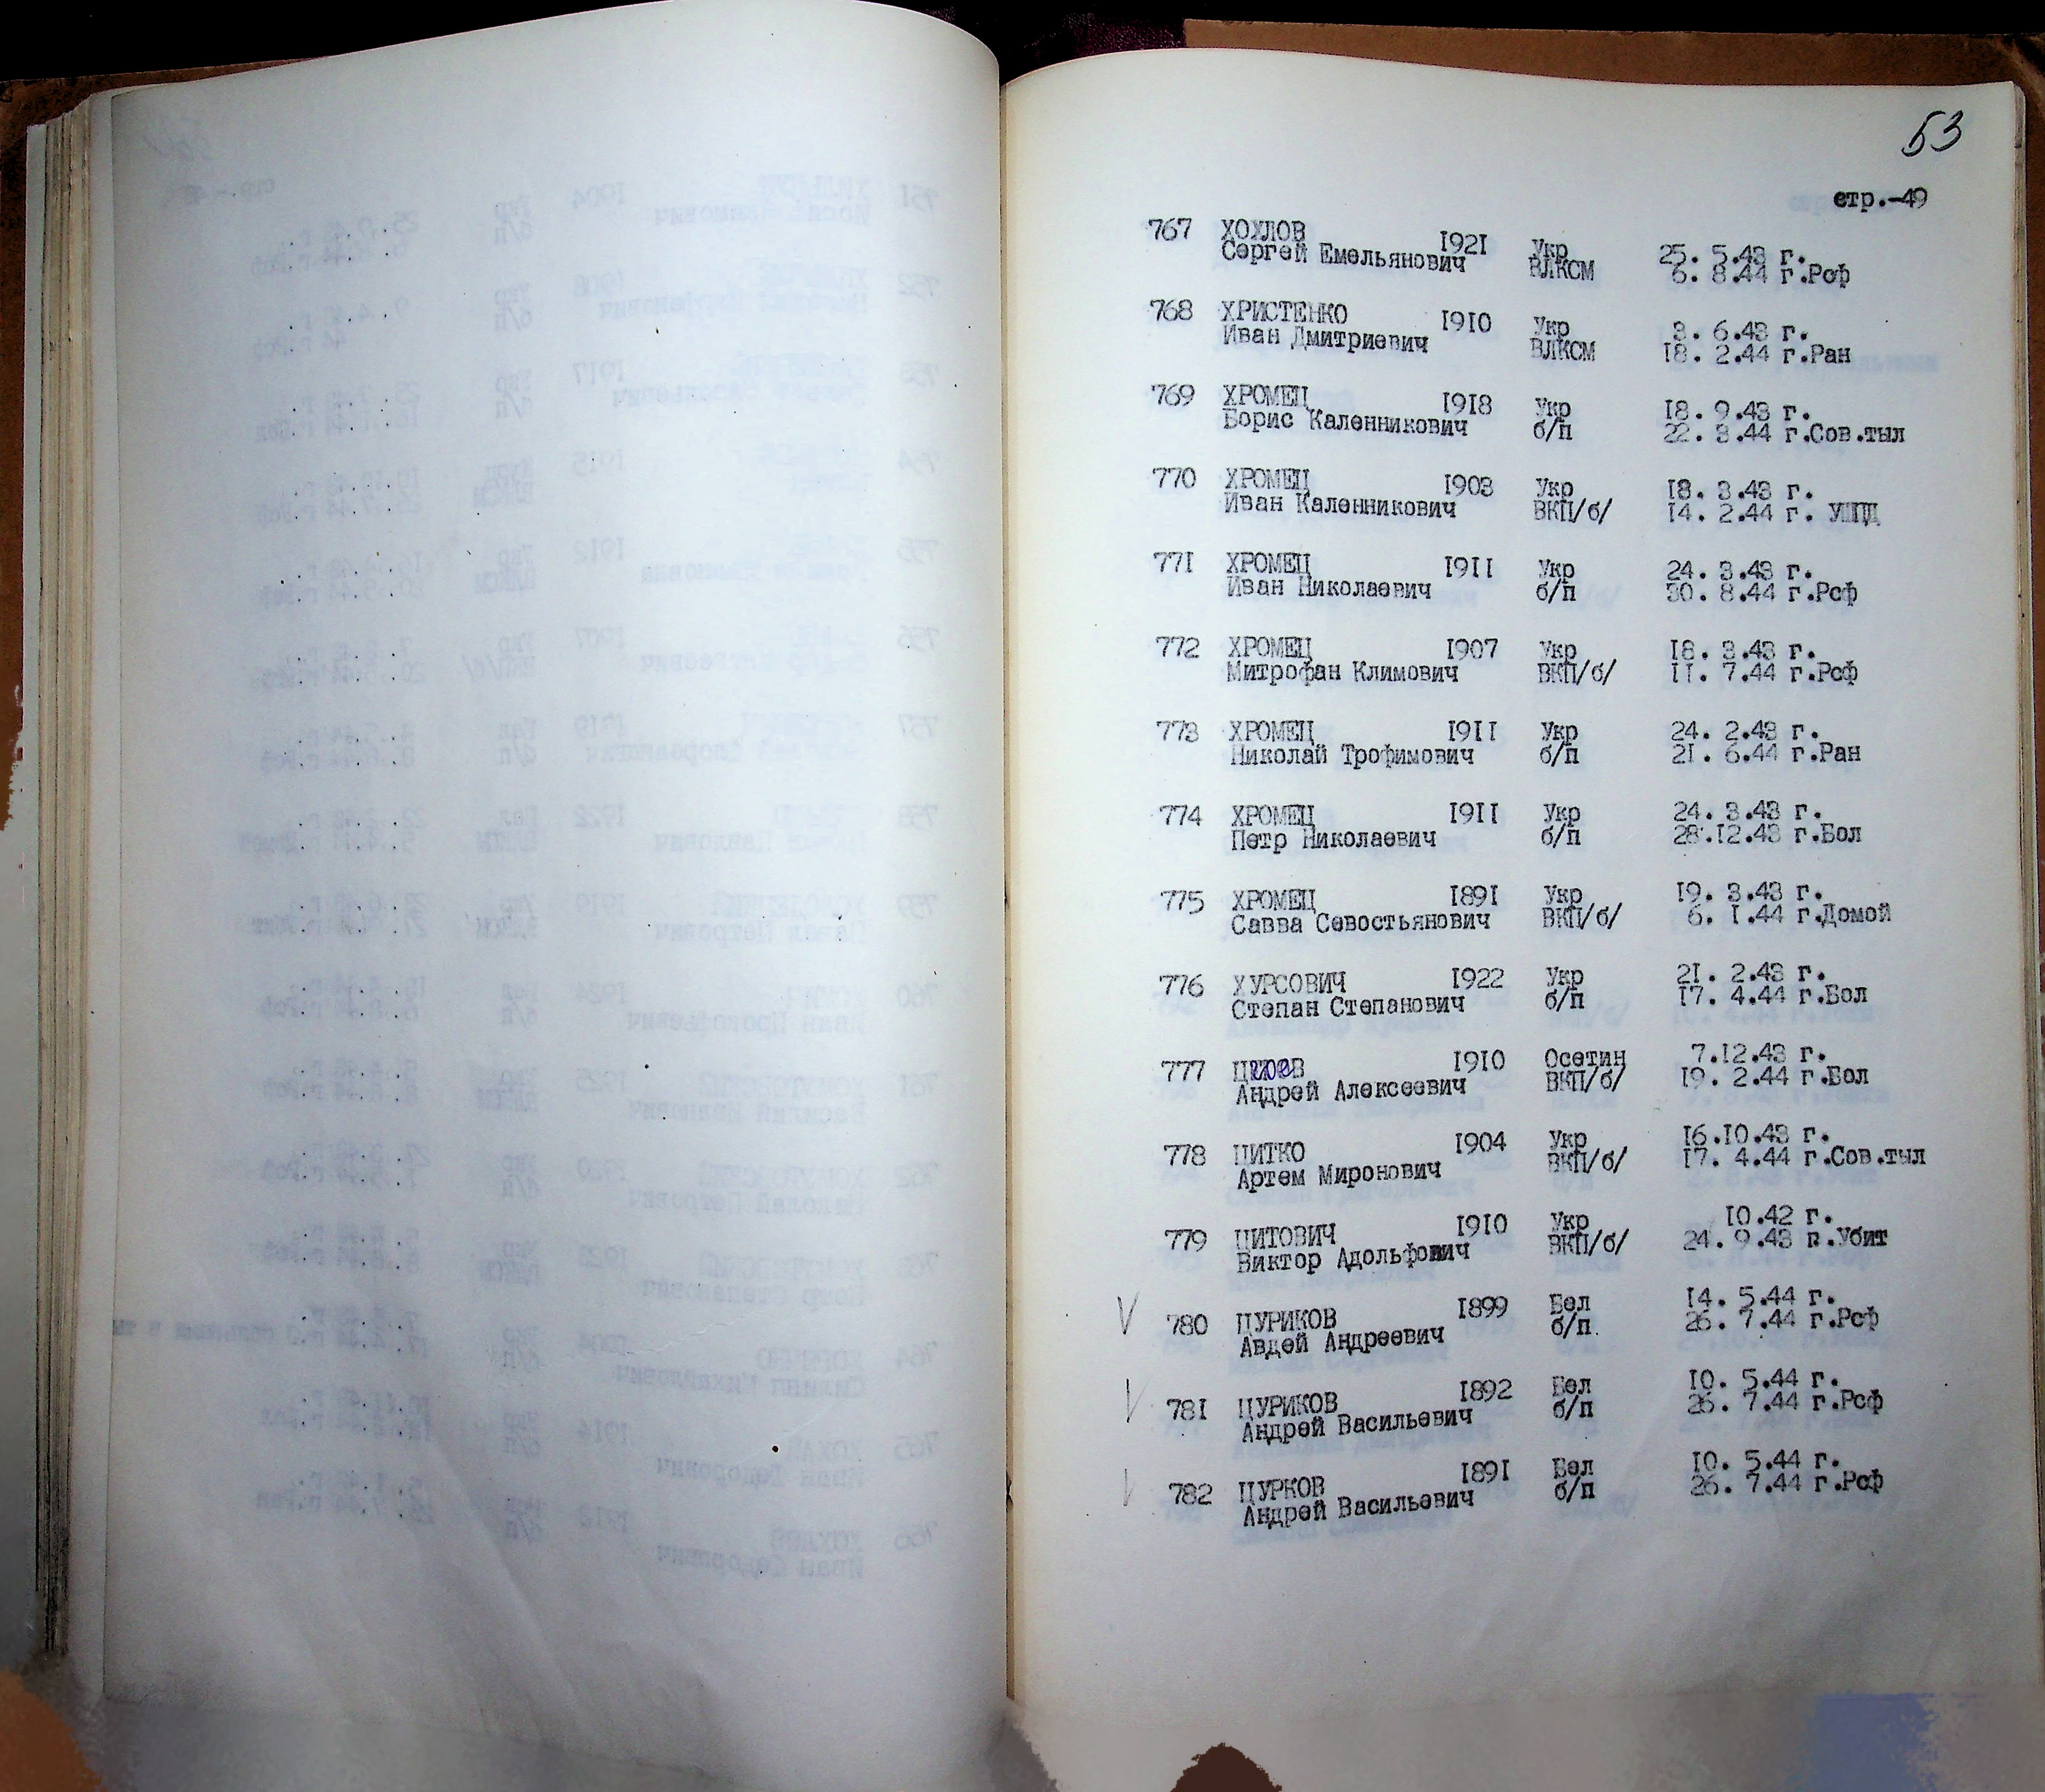 53
стр.-49
767 ХОХЛОВ 1921 Укр 25. 5.43 г.
Сергей Емельянович ВЛКСМ 6. 8.44 г.Рсф
768 ХРИСТЕНКО 1910 Укр 3. 6.43 г.
Иван Дмитриевич ВЛКСМ 18. 2.44 г.Ран
769 ХРОМЕЦ 1918 Укр 18. 9.43 г.
Борис Каленникович б/п 22. 3.44 г.Сов.тыл
770 ХРОМЕЦ 1903 Укр 18. 3.43 г.
Иван Каленникович ВКП/б/ 14. 2.44 г. УШПД
771 ХРОМЕЦ 1911 Укр 24. 3.43 г.
Иван Николаевич б/п 30. 8.44 г.Рсф
772 ХРОМЕЦ 1907 Укр 18. 3.43 г.
Митрофан Климович ВКП/б/ 11. 7.44 г.Рсф
773 ХРОМЕЦ 1911 Укр 24. 2.43 г.
Николай Трофимович б/п 21. 6.44 г.Ран
774 ХРОМЕЦ 1911 Укр 24. 3.43 г.
Петр Николаевич б/п 28.12.43 г.Бол
775 ХРОМЕЦ 1891 Укр 19. 3.43 г.
Савва Севостьянович ВКП/б/ 6. 1.44 г.Домой
776 ХУРСОВИЧ 1922 Укр 21. 2.43 г.
Степан Степанович б/п 17. 4.44 г.Бол
777 1910 Осетин 7.12.43 г.
Андрей Алексеевич ВКП/б/ 19. 2.44 г.Бол
778 ЦИТКО 1904 Укр 16.10.43 г.
Артем Миронович ВКП/б/ 17. 4.44 г.Сов.тыл
779 ЦИТОВИЧ 1910 Укр 10.42 г.
Виктор Адольфович ВКП/б/ 24. 9.43 г.Убит
V 780 ЦУРИКОВ 1899 Бел 14. 5.44 г.
Авдей Андреевич б/п. 26. 7.44 г.Рсф
V 781 ЦУРИКОВ 1892 Бел 10. 5.44 г.
Андрей Васильевич б/п 26. 7.44 г.Рсф
V 782 ЦУРКОВ 1891 Бел 10. 5.44 г.
Андрей Васильевич б/п 26. 7.44 г.Рсф